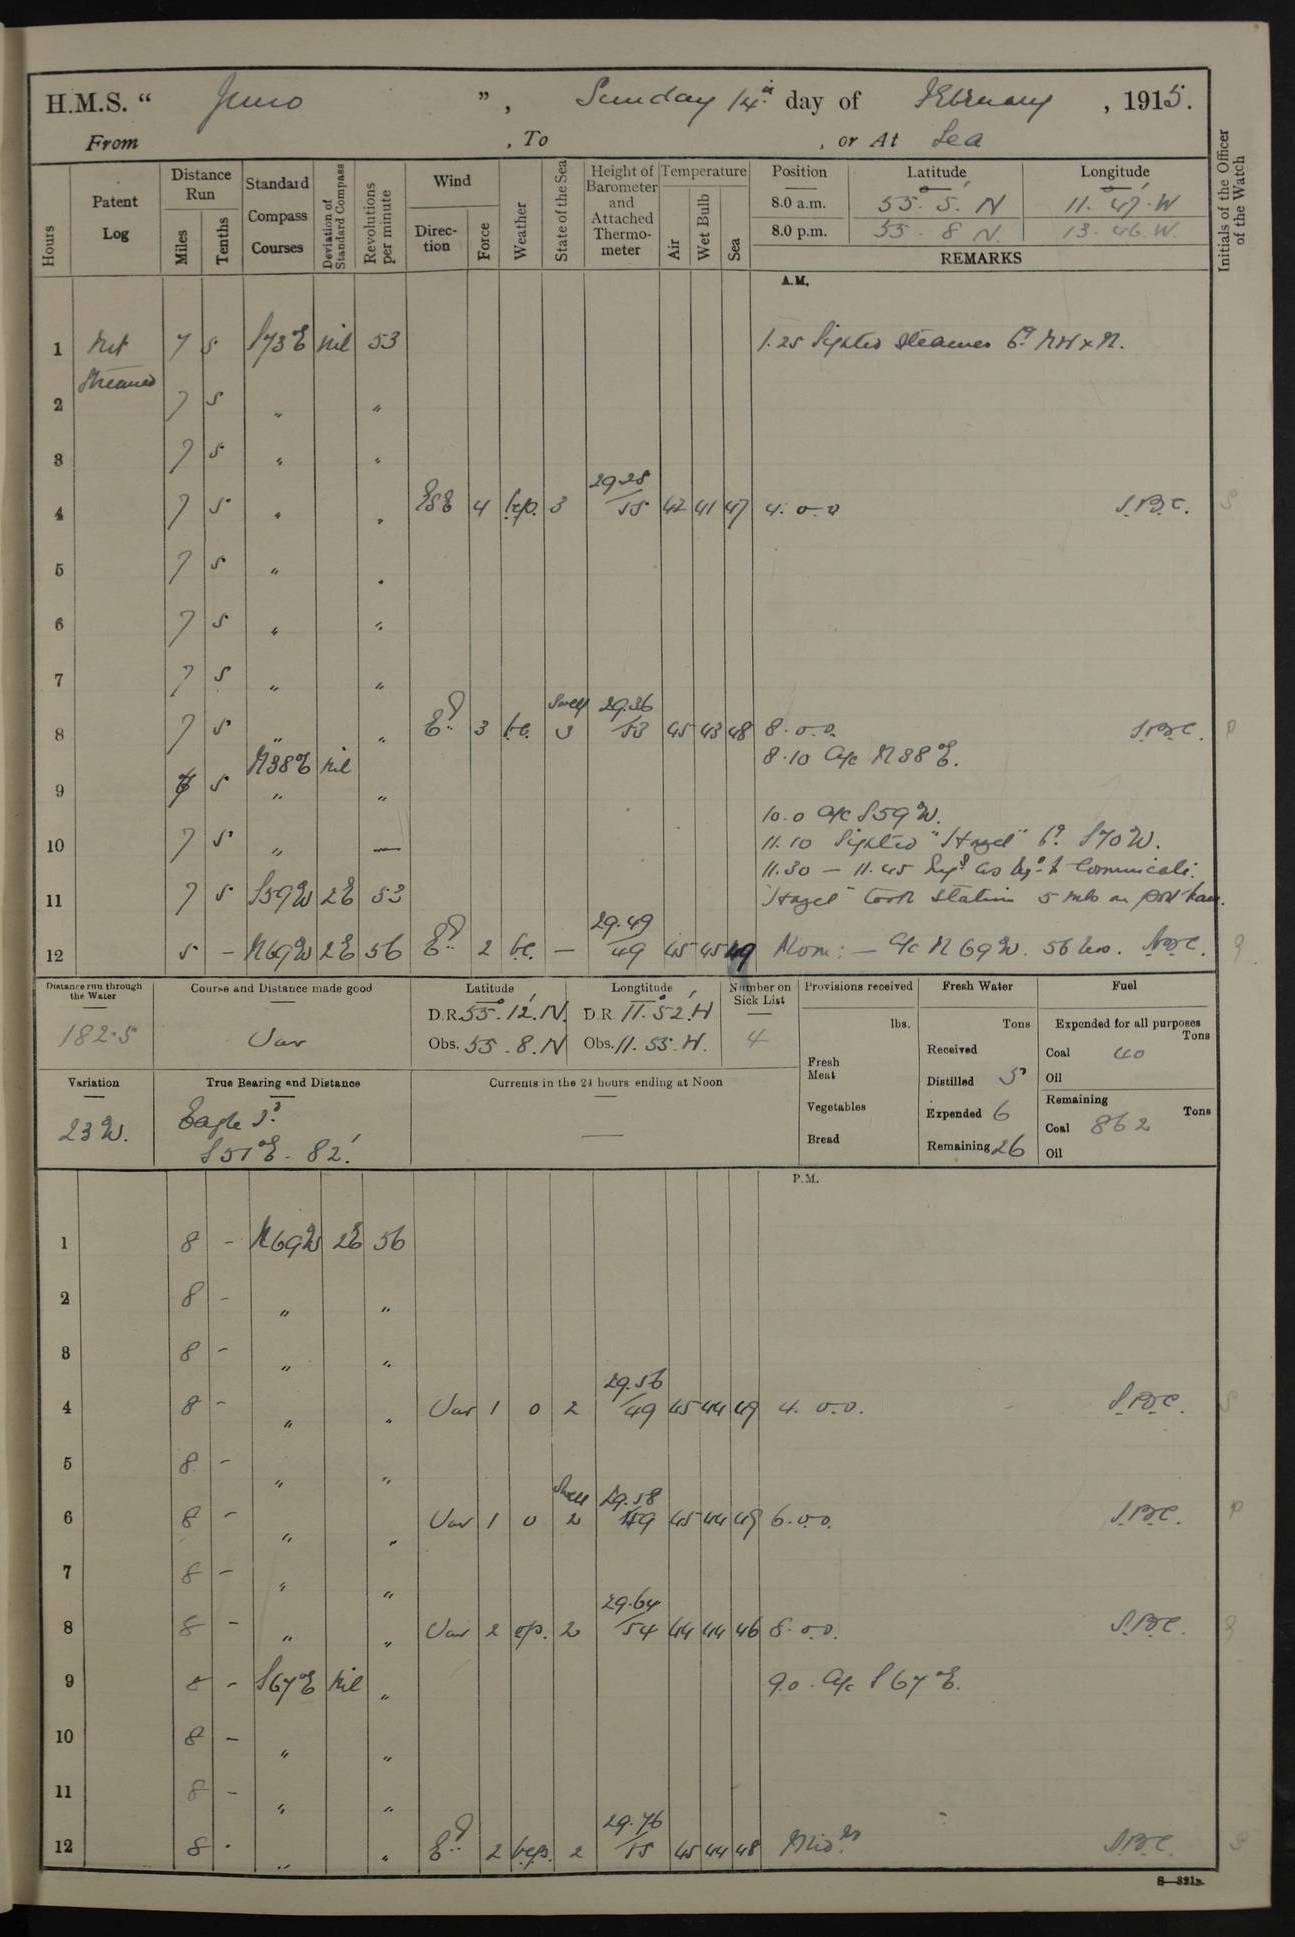 H.M.S. “ Juno ” , Sunday 14th day of February , 1915.
From , To , or At Sea
Hours
Patent Log
Distance Run
Miles
Tenths
Standard Compass Courses
Deviation of Standard Compass
Revolutions per minute
Wind
Direction
Force
Weather
State of the Sea
Height of Barometer and Attached Thermometer
Temperature
Air
Wet Bulb
Sea
Position Latitude Longitude
8.0 a.m. 55. 5. N 11. 47. W
8.0 p.m. 55. 8 N. 13. 46. W.
REMARKS
Initials of the Officer of the Watch
A.M.
1 Not 7 5 S73°E nil 53 1.25 Sighted steamer Bg NW x N.
Streamed
2 7 5 " "
3 7 5 " "
4 7 5 " " ESE 4 bcp. 3 29.28/55 42 41 47 4. 0.0 S.B.C.
5 7 5 " "
6 7 5 " "
7 7 5 " "
8 7 5 " " Ely 3 bc. Swell 3 29.36/53 45 43 48 8.0.0. S.B.C.
N38°E nil 8.10 A/c N38°E.
9 5 " "
10.0 A/c S59W.
10 7 5 " — 11.10 Sighted "Hazel" Bg S70W.
11.30 – 11.45 Engs as req'd to Communicate.
11 7 5 S59W 2E 53 "Hazel" took station 5 mls on port beam.
12 5 – N69W 2E 56 Ely 2 bc. — 29.49/49 45 45 49 Noon: – A/c N69W. 56 revs.
Distance run through the Water
182.5
Course and Distance made good
Var
Latitude Longtitude
D.R. 55. 12. N. D.R 11. 52. W
Obs. 55. 8. N Obs. 11. 55. W.
Number on Sick List
4
Provisions received
lbs.
Fresh Meat
Vegetables
Bread
Fresh Water
Tons
Received
Distilled 5
Expended 6
Remaining 26
Fuel
Expended for all purposes
Tons
Coal 40
Oil
Remaining
Tons
Coal 862
Oil
Variation
23W.
True Bearing and Distance
Eagle Id
S51°E - 82'.
Currents in the 24 hours ending at Noon
—
P.M.
1 8 – N69W 2E 56
2 8 – " "
3 8 – " "
4 8 – " " Var 1 o 2 29.56/49 45 44 49 4. 0.0. S.B.C.
5 8 – " "
6 8 – " " Var 1 o Swell 2 29.58/49 45 44 49 6.0.0. S.B.C.
7 8 – " "
8 8 – " " Var 2 op. 2 29.64/54 44 44 46 8.0.0. S.B.C.
9 8 – S67°E Nil " 9.0. A/c S67°E.
10 8 – " "
11 8 – " "
12 8 - " " Ely 2 bcp. 2 29.76/55 45 44 48 Midnt S.B.C.
S—321B.